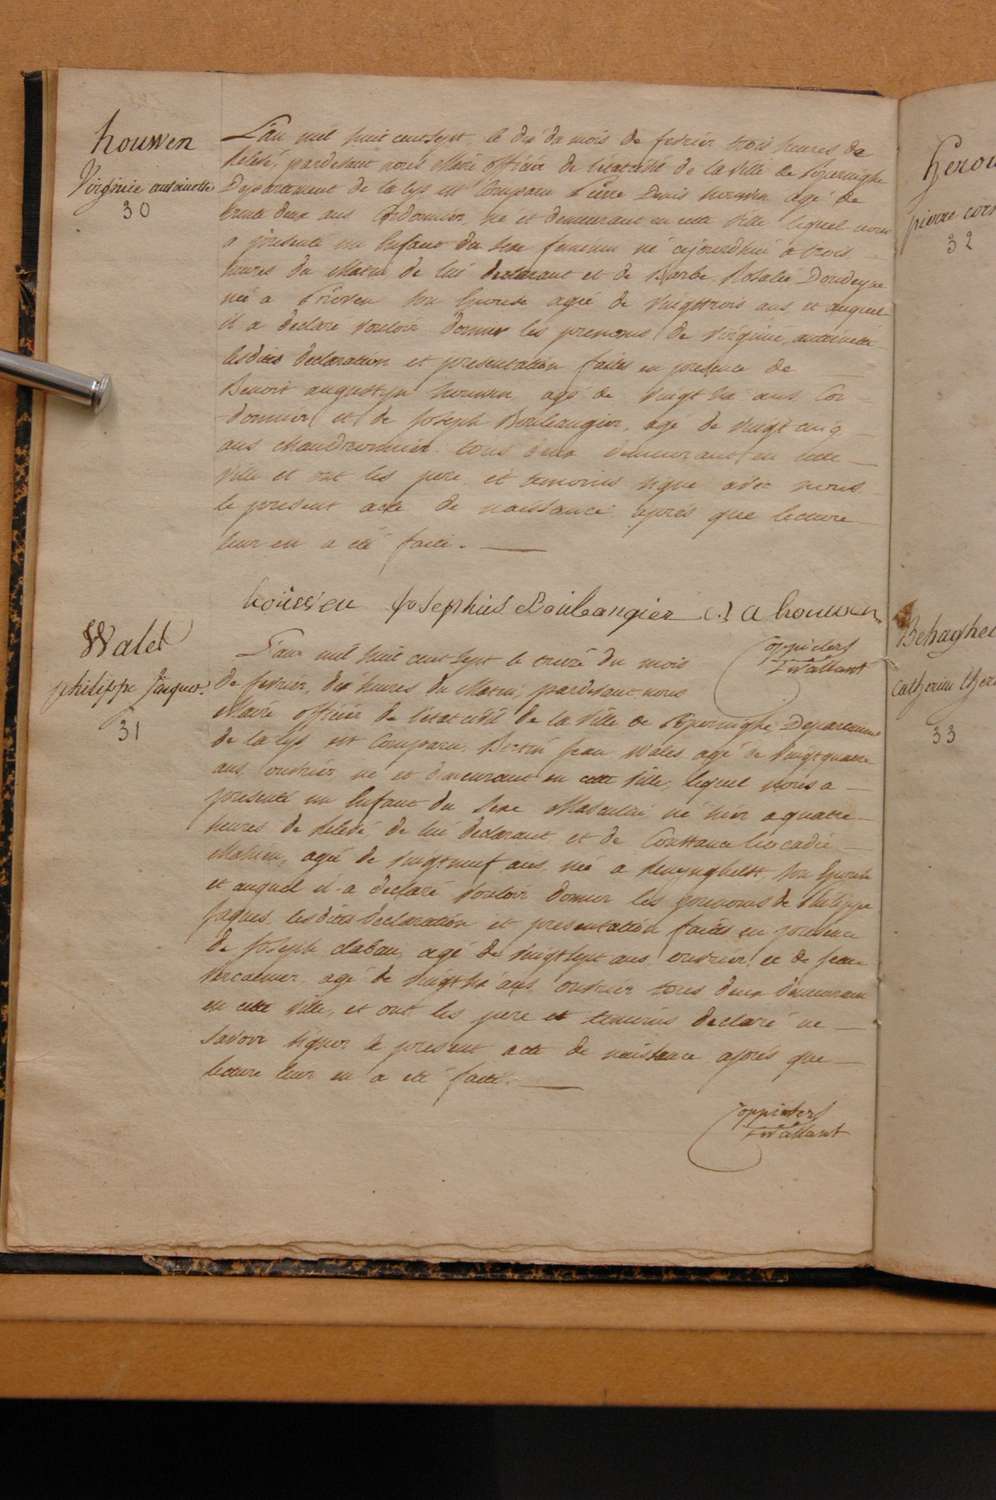 houwen
Virginie antoinette
30
L'an mil huit cent sept le dix du mois de fevrier trois heures de
relevé, pardevant nous Maire officier de l'etat civil de la ville de Poperinghe
Departement de la Lys est Comparu Pierre Denis houwen agé de
trente deux ans Cordonnier, né et demeurant en cette ville lequel nous
a presenté un Enfant du sexe feminin né aujourdhui a trois
heures du Matin de lui declarant et de Barbe Rosalie Doudeyne
née a son Epouse agée de vingt trois ans, et auquel
il a declaré vouloir donner les prenoms de Virginie antoinette
lesdites declaration et presentation faites en presence de
Benoit augustyn houwen agé de vingt six ans Cor-
donnier et de Joseph Boulangier, agé de vingt cinq
ans chaudronnier tous deux demeurant en cette
ville et ont les pere et temoins signé avec nous
le present acte de naissance après que lecture
leur en a été faite.
houwen Josephus Boulangier houwen
Walel
philippe Jacques
31
L'an mil huit cent sept le treize du mois
de fevrier, dix heures du Matin, pardevant nous
Maire officier de l'etat civil de la ville de Poperinghe Departement
de la Lys est Comparu Bertin Jean Wales agé de vingt quatre
ans ouvrier né et demeurant en cette ville, lequel nous a
presenté un Enfant du sexe Masculin né hier a quatre
heures de relevé de lui declarant et de Constance Leocadie
Mahieu, agée de vingt neuf ans née a Reuynghelst son Epouse
et auquel il a declaré vouloir donner les prenoms de Philippe
Jaques lesdites declaration et presentation faites en presence
de Joseph agé de vingt sept ans ouvrier et de Jean
agé de vingt six ans ouvrier tous deux demeurant
en cette ville, et ont les pere et temoins declaré ne
savoir signer le present acte de naissance après que
lecture leur en a été faite.
pierre
32
Behaghel
Catherine
33